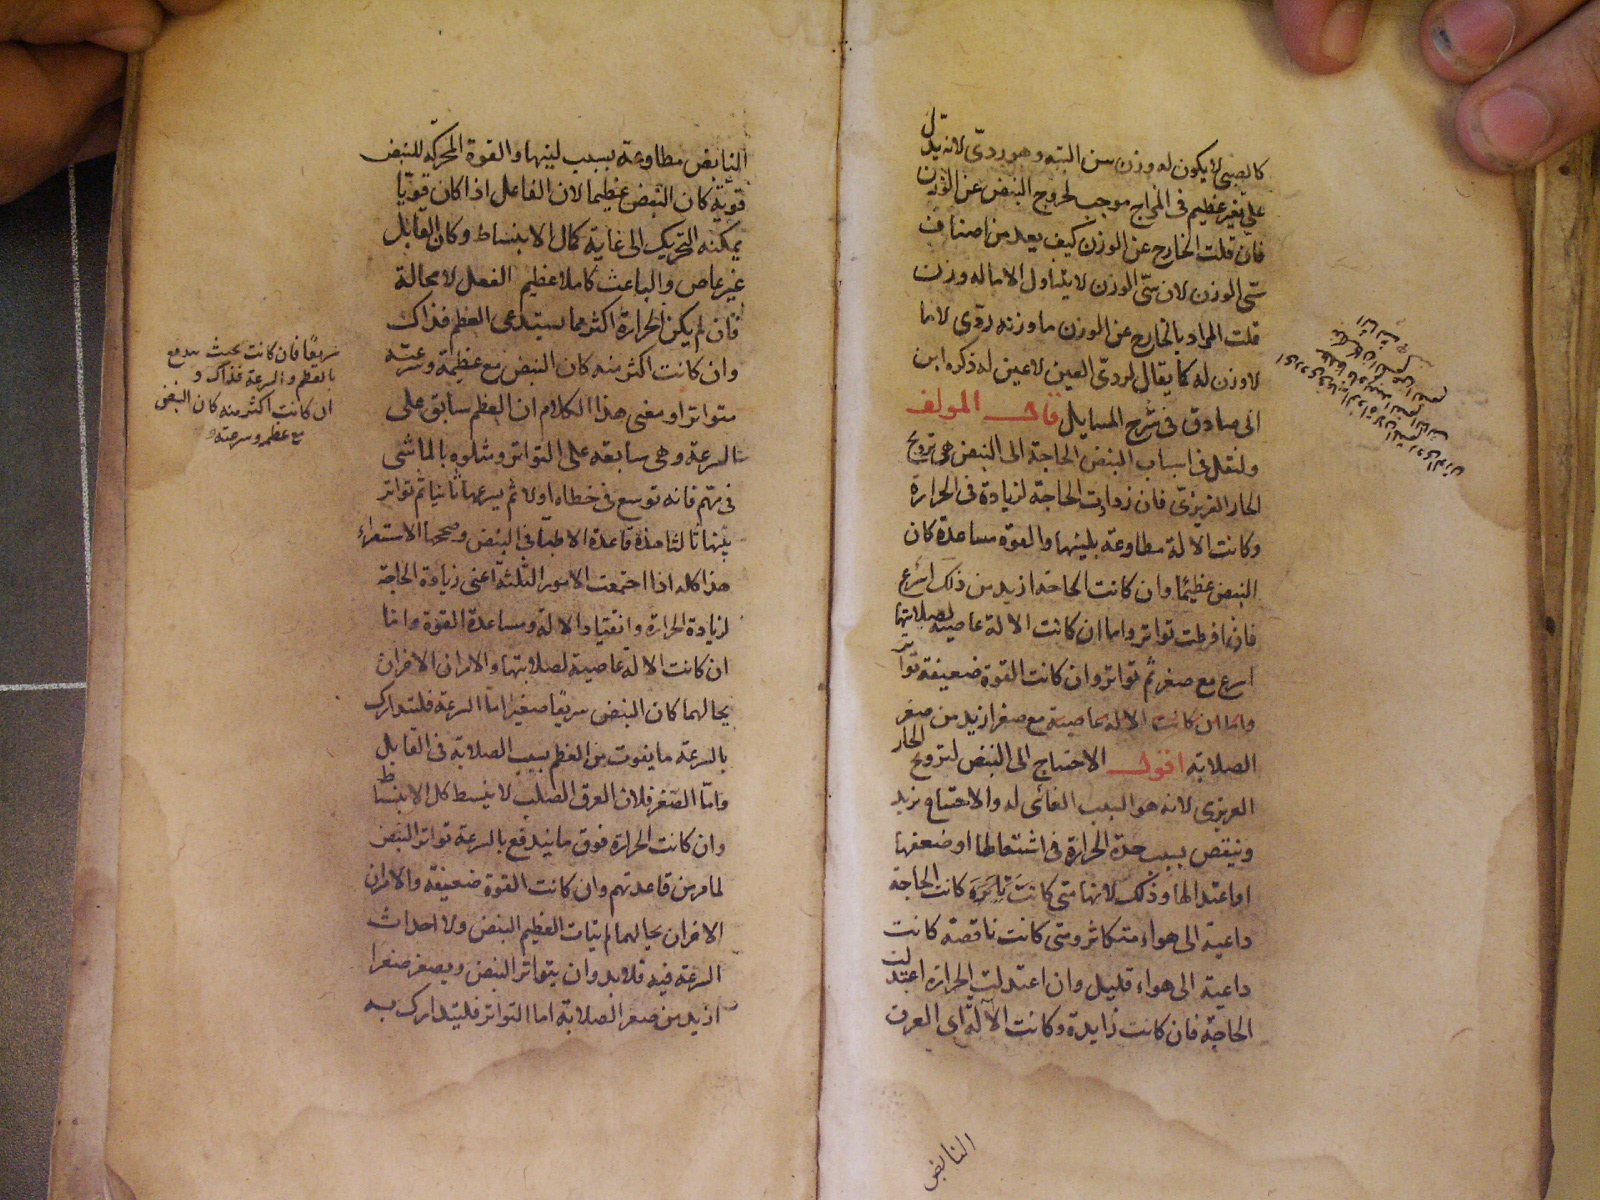 كالصبى لا يكون له وزن سن البته وهو ردىّ لانه يدلّ
على تغير عظيم فى المزاج موجب لخروج النبض عن الوزن
فان قلت الخارج عن الوزن كيف يعد من اصناف
شى الوزن لان شى الوزن لا يتناول الا ما له وزن
قلت المراد بالخارج عن الوزن ما وزنه ردّى لا ما
لا وزن له كما يقال لردىّ العين لا عين له ذكره ابن
ابى صادق فى شرح المسايل قال المولف
ولنقل فى اسباب النبض الحاجة الى النبض هى ترويح
الحار الغريزىّ فان زدادت الحاجة لزيادة فى الحرارة
وكانت الالة مطاوعة بلينها والقوة مساعدة كان
النبض عظيمًا وان كانت الحاجة ازيد من ذلك اسرع
فان افرطت تواتر واما ان كانت الالة عاصية لصلابتها
اسرع مع صغر ثم تواتر وان كانت القوة ضعيفة تواتر
واما ان كانت الالة عاصية مع صغر ازيد من صغر
الصلابة اقول الاحتياج الى النبض لترويح الحار
الغريزى لانه هو السبب الغائى له والاحتياج يزيد
وينقص بسبب حدة الحرارة فى اشتعالها او ضعفها
او اعتدالها وذلك لانها متى كانت كانت الحاجة
داعية الى هواء متكاثر ومتى كانت ناقصة كانت
داعية الى هواء قليل وان اعتدلت الحرارة اعتدلت
الحاجة فان كانت زايدة وكانت الآلة اى العرق
النابض
النابض مطاوعة بسبب لينها والقوة المحركة للنبض
قويّة كان النبض عظيما لان الفاعل اذا كان قويّا
يمكنه التحريك الى غاية كمال الانبساط وكان القابل
غير عاص والباعث كاملا عظيم الفعل لا محالة
فان لم يكن الحرارة اكثر مما يستدعى العظم فذاك
وان كانت اكثر منه كان النبض مع عظمة وسرعته
متواترا ومعنى هذا الكلام ان العظم سابق على
السرعة وهى سابقة على التواتر ومثلوه بالماشى
فى مهم فانه توسع فى خطاه اولا ثم يسرعها ثانيا ثم تواتر
بينها ثالثا هذه قاعدة الاطبّاء فى النبض وصححها الاستقراء
هذا كله اذا اجتمعت الامور الثلثة اعنى زيادة الحاجة
لزيادة الحرارة وانقياد الالة ومساعدة القوة واما
ان كانت الالة عاصية لصلابتها والامران الاخران
بحالهما كان النبض سريعًا صغيرًا امّا السرعة فلتدارك
بالسرعة ما يفوت من العظم بسبب الصلابة فى القابل
وامّا الصّغر فلان العرق الصلب لا ينبسط كل الانبساط
وان كانت الحرارة فوق ما يندفع بالسرعة تواتر النبض
لما مر من قاعدتهم وان كانت القوة ضعيفة والامران
الاخران بحالهما لم يتات العظيم النبض ولا احداث
السرعة فيه فلابد وان يتواتر النبض ويصغر صغرا
ازيد من صغر الصلابة اما التواتر فليتدارك به
سريعًا فان كانت بحيث يندفع
بالعظم والسرعة فذاك و
ان كانت اكثر منه كان النبض
مع عظمه وسرعته و